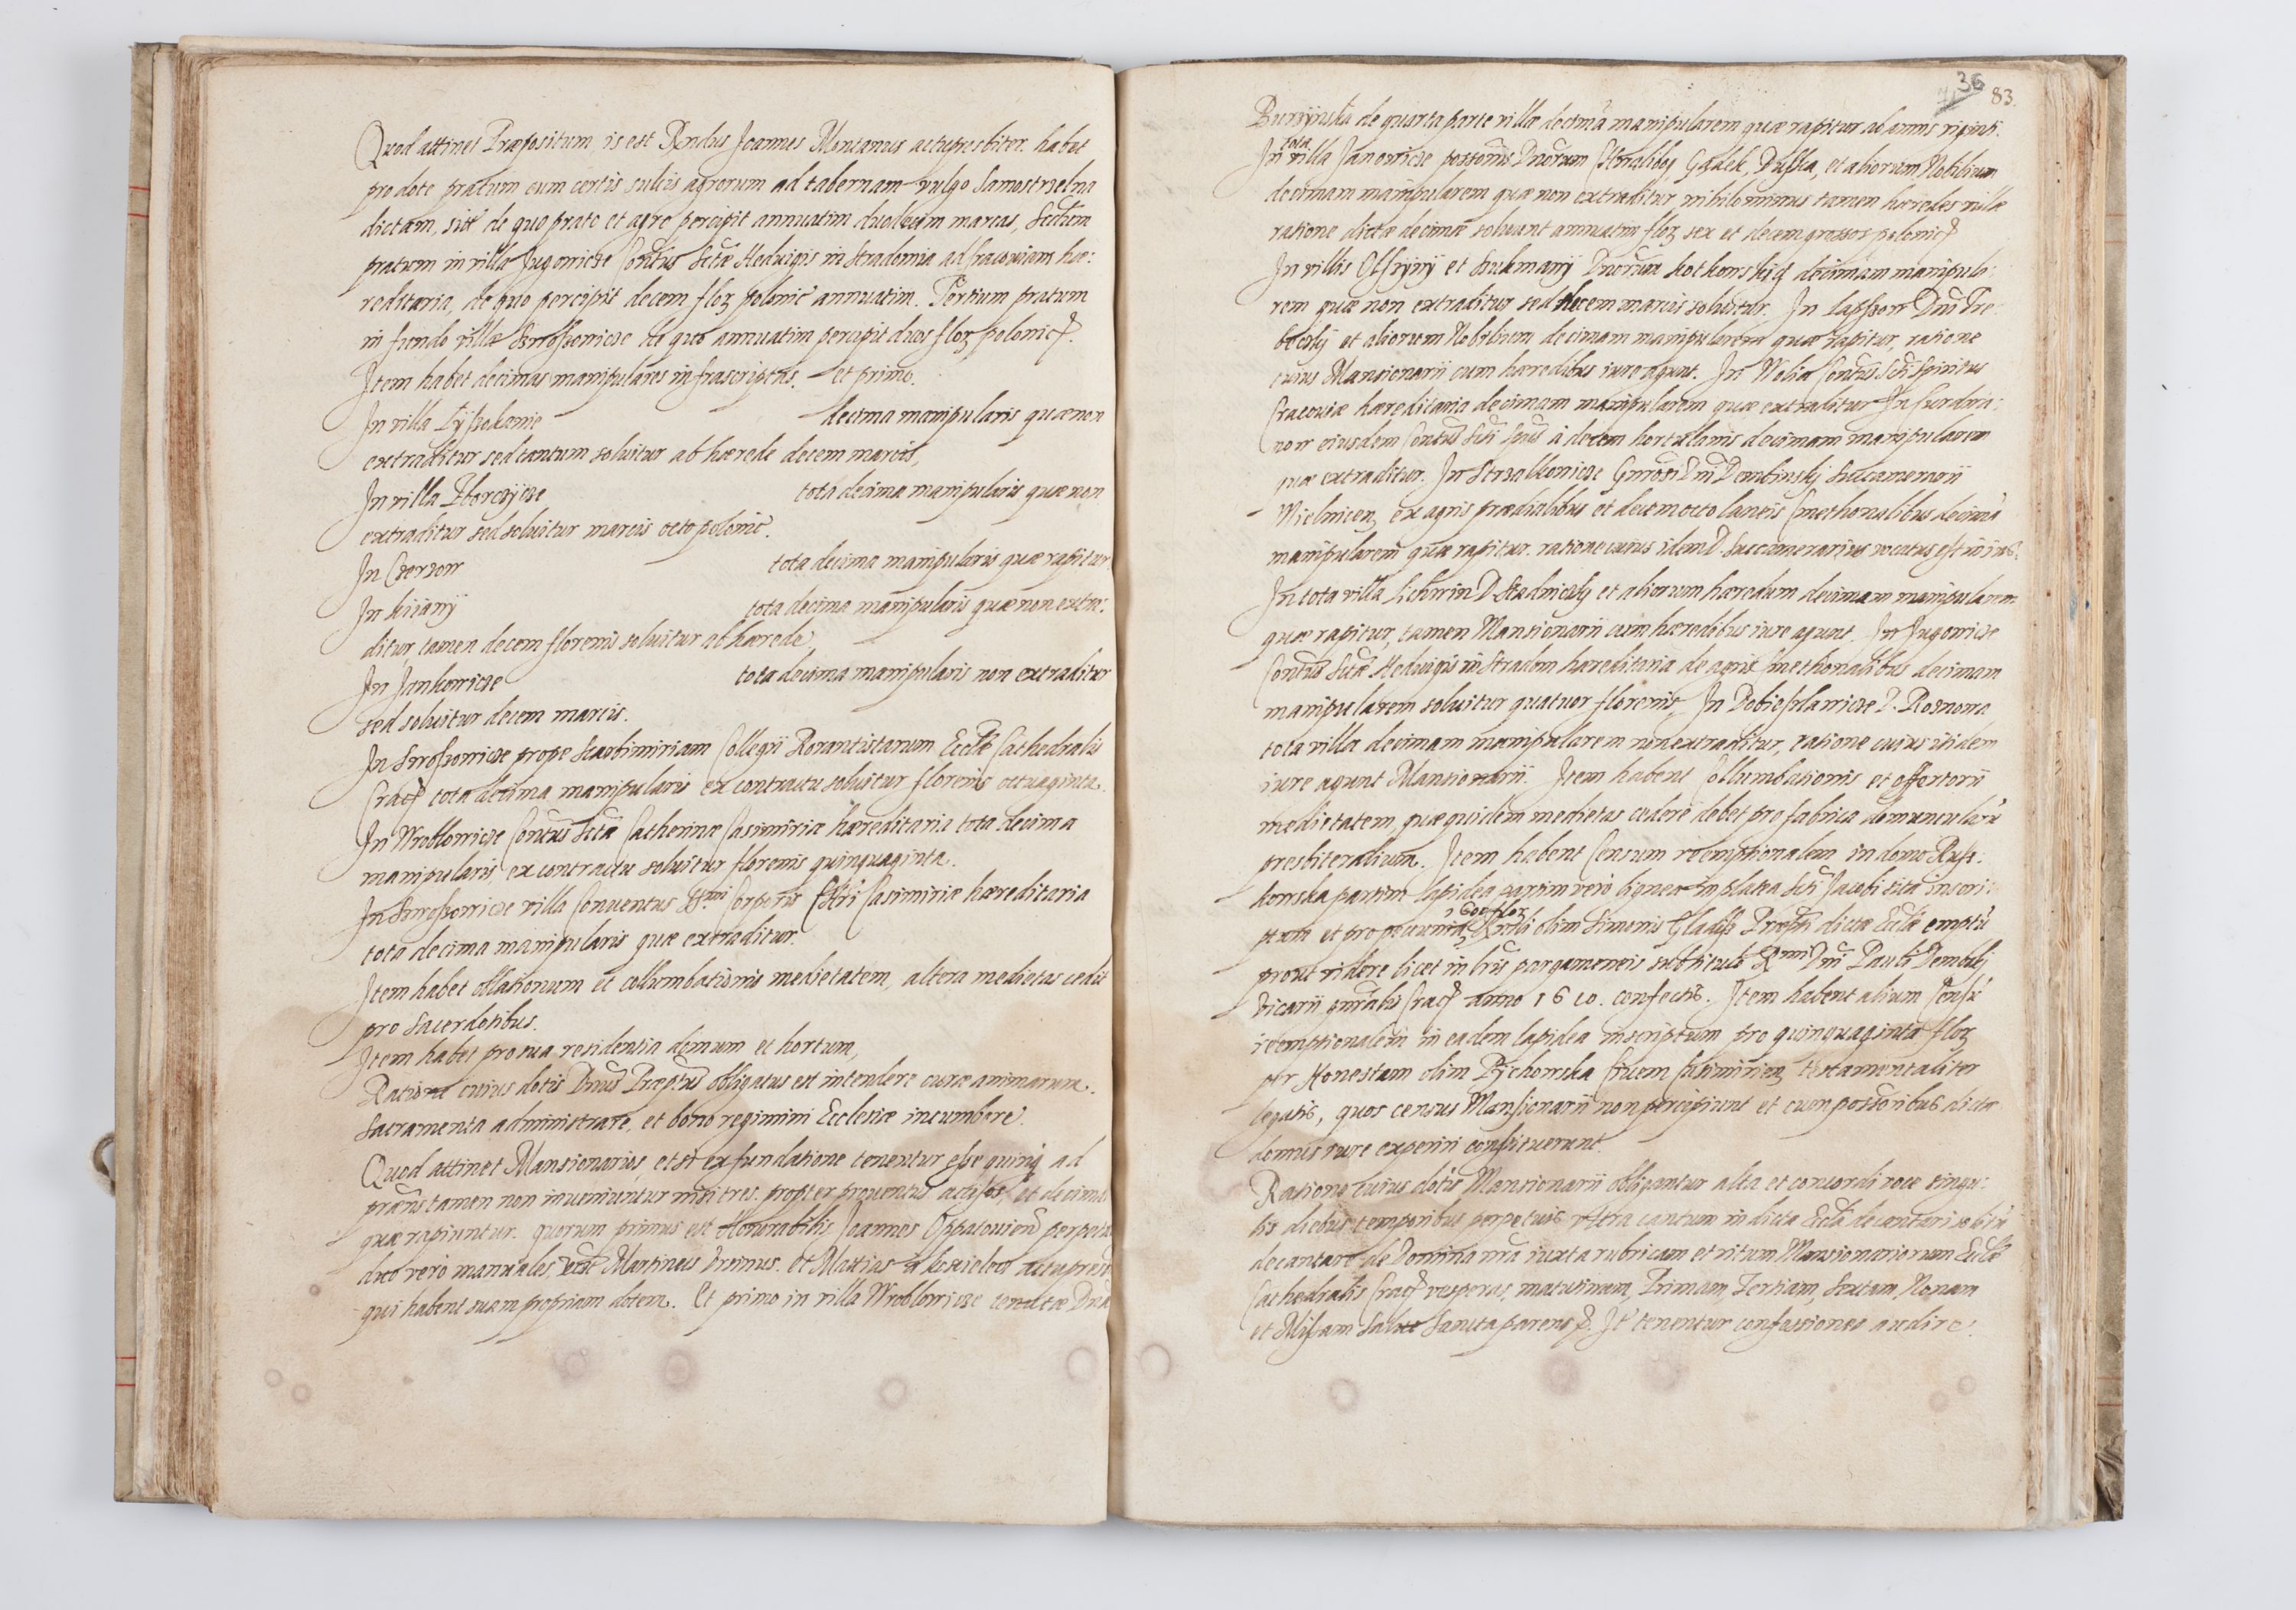 Quod attinet Præpositum, is est Rndus Joannes Montanus actu presbiter. habet
pro dote pratum cum certis sulcis agrorum ad tabernam vulgo Samostrzelna
dictam, de quo prato et agro percipit annuatim duodecim marcas, Sectum
pratum in villa Jugowicze Contus Sctæ Hedvigis in Stradomia ad Cracoviam hæ:
reditaria, de quo percipit decem floz polonic annuatim. Tertium pratum
in fundo villæ de quo annuatim percipit duos floz polonic.
Item habet decimas manipulares infrascriptas. et primo.
In villa decima manipularis quæ non
extraditur sed tantum soluitur ab hærede decem marcis,
In villa tota decima manipularis quæ non
extraditur sed soluitur marcis octo polonic.
In tota decima manipularis quæ rapitur.
In Kiianÿ tota decima manipularis quæ non extra:
ditur, tamen decem florenis soluitur ab hærede.
In Jankowicze tota decima manipularis non extraditur
sed soluitur decem marcis.
In prope Collegii Rorantistarum Ecclæ Cathedralis
Crac tota decima manipularis ex contractu soluitur florenis octuaginta.
In Wroblowicze Contus Sctæ Catherinæ Casimiriæ hæreditaria tota decima
manipularis, ex contractu soluitur florenis quinquaginta.
In villa Conuentus Ssmi Corporis Chri Casimiriæ hæreditaria
tota decima manipularis quæ extraditur.
Item habet oblationum et collumbationis medietatem, altera medietas cedit
pro Sacerdotibus.
Item habet pro sua residentia domum et hortum,
Ratione cuius dotis Dnus Præptus obligatus est intendere curæ animarum.
Sacramenta administrare, et bono regimini Ecclesiæ incumbere.
Quod attinet Mansionarios, etsi ex fundatione tenentur esse quinq, ad
præns tamen non inueniuntur nisi tres, propter prouentus et decimas
quæ rapiuntur. quorum primus est Honorabilis Joannes
duo vero manuales, Martinus Ursinus. et Mattias
qui habent suam propriam dotem. Et primo in villa Wroblowicze
36
83.
de quarta parte villæ decimā manipularem quæ rapitur ab annis viginti.
In tota villa Janowicze possonis Dnorum et aliorum Nobilium
decimam manipularem quæ non extraditur nihilominus tamen hæredes villæ
ratione dictæ decimæ soluunt annuatim floz sex et decem grossos polonic
In villis et Dnorum decimam manipula:
rem quæ non extraditur sed decem marcis soluitur. In Dni Tre:
et aliorum Nobilium decimam manipularem quæ rapitur, ratione
cuius Mansionarii cum hæredibus iure agunt. In Wolia Contus Scti Spiritus
Cracouiæ hæreditaria decimam manipularem quæ extraditur
eiusdem Contus Scti Spus à decem hortulanis decimam manipularem
quæ extraditur. In Gnrosi Dni Dembinskj Succamerarii
ex agris prædialibus et decem octo laneis Cmethonalibus decimā
manipularem quæ rapitur. ratione cuius idem D. Succamerarius vocatus est in ius.
In tota villa D. et aliorum hæredum decimam manipularem
quæ rapitur, tamen Mansionarii cum hæredibus iure agunt. In Jugowicze
Contus Sctæ Hedvigis in Stradom hæreditaria de agris Cmethonalibus decimam
manipularem soluitur quatuor florenis, In D.
tota villa decimam manipularem non extraditur, ratione cuius itidem
iure agunt Mansionarii. Item habent Collumbationis et offertorii
medietatem, quæ quidem medietas cedere debet pro fabrica domuncularū
presbiteralium. Item habent Censum reemptionalem in domo
partim lapidea partim vero lignea in platea Scti Jacobi sita inscri:
ptum et pro pecunia 600 floz olim Simonis dictæ Ecclæ emptū
prout videre licet in lris pargameneis sub titulo Rmi Dni Pauli
Vicarii gnralis Crac anno 1610. confectis. Item habent alium Censū
reemptionalem in eadem lapidea inscriptum pro quinquaginta floz
per Honestam olim Ciuem Casimirien testamentaliter
legatis, quos census Mansionarii non percipiunt et cum possoribus dictæ
domus iure experiri constituerunt.
Ratione cuius dotis Mansionarii obligantur alta et concordi voce singu:
lis diebus temporibus perpetuis cantum in dicta Eccla decantari solitū
decantare de Domina nra iuxta rubricam et ritum Mansionariorum Ecclæ
Cathedralis Crac vesperas, matutinum, Primam, Tertiam, Sextam, Nonam
et Missam Salve Sancta parens. It tenentur confessiones audire.